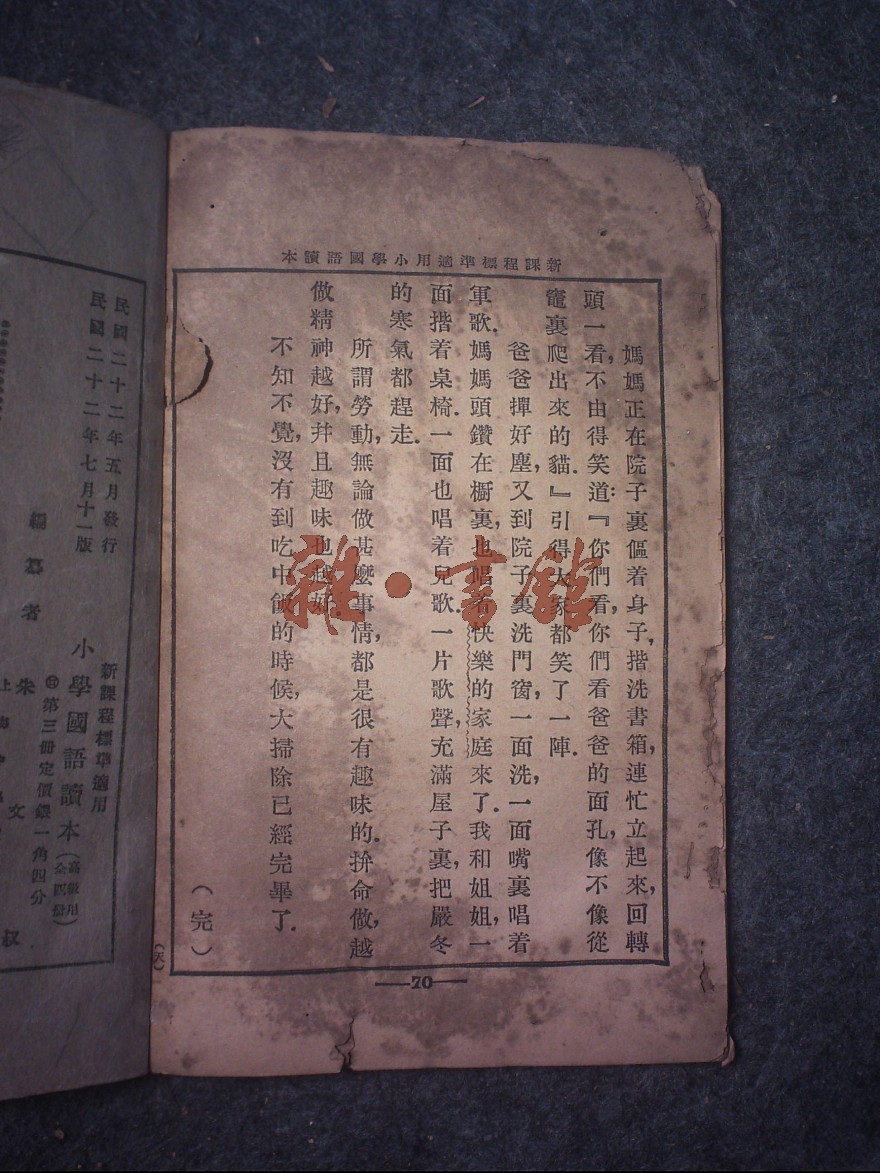 新課程標準適用小學國語讀本
媽媽正在院子裏傴着身子，揩洗書箱，連忙立起來，回轉
頭一看，不由得笑道：『你們看，你們看爸爸的面孔，像不像從
竈裏爬出來的貓．』引得大家都笑了一陣．
爸爸撣好塵，又到院子裏洗門窗，一面洗，一面嘴裏唱着
軍歌．媽媽頭鑽在櫥裏，也唱着快樂的家庭來了．我和姐姐，一
面揩着桌椅．一面也唱着兒歌．一片歌聲，充滿屋子裏，把嚴冬
的寒氣都趕走．
所謂勞動，無論做甚麼事情，都是很有趣味的．拚命做，越
做精神越好，幷且趣味也越好．
不知不覺，沒有到吃中飯的時候，大掃除已經完畢了．
（完）
70
雜·書館
民國二十二年五月發行
民國二十二年七月十一版
新課程標準適用
小學國語讀本
第三冊定價銀一角四分
編纂者
朱文叔
上